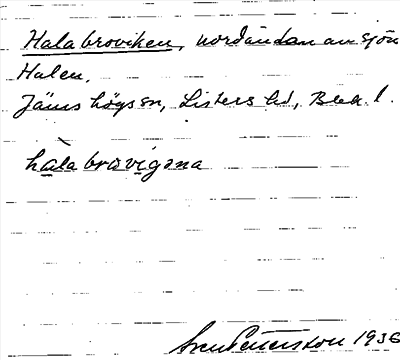 Halabroviken, nordändan av sjön
Halen.
Jäms högs sn, Listers hd, Blek. l.
hàlabrovigəna
Sven Petersson 1936